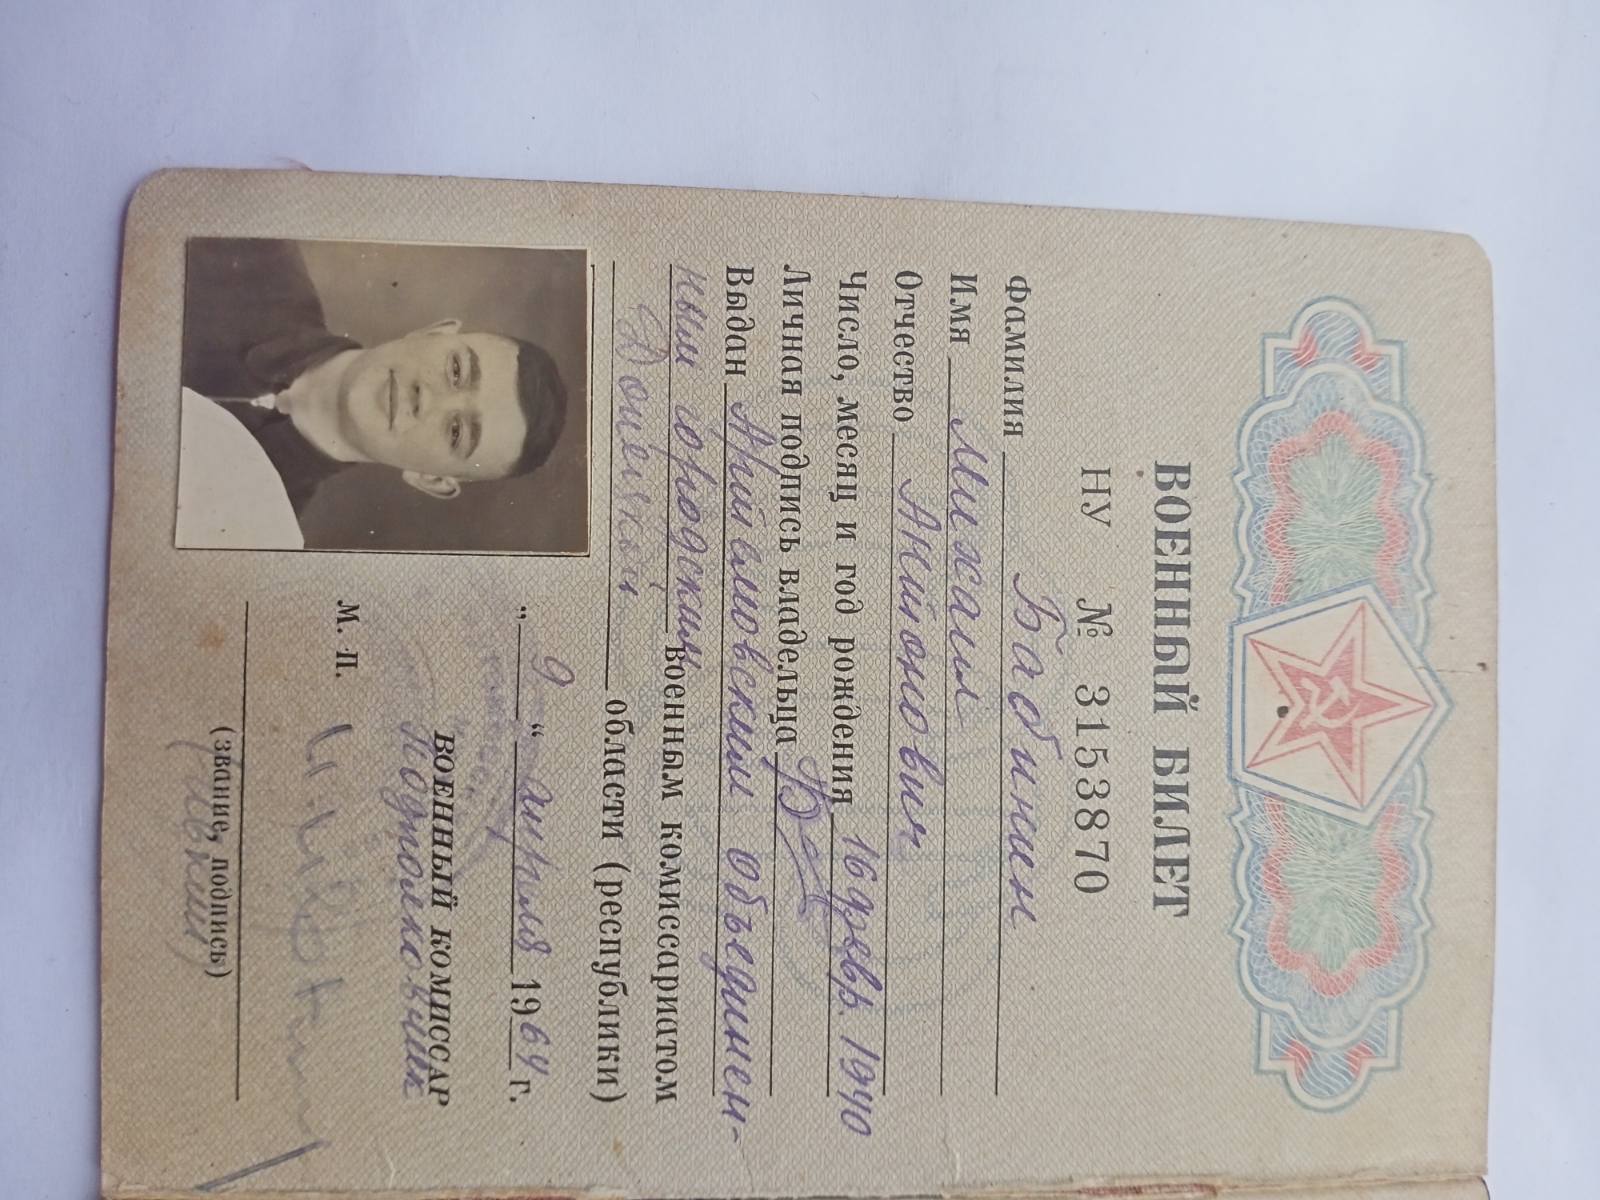 ВОЕННЫЙ БИЛЕТ
НУ № 3153870
Фамилия Бабинин
Имя Михаил
Отчество Антонович
Число, месяц и год рождения 16 февр. 1940
Личная подпись владельца
Выдан Артемовским объединен-
ным городским военным комиссариатом
Донецкой области (республики)
„ 9 “ апреля 1964 г.
ВОЕННЫЙ КОМИССАР
Подполковник
М. П.
(звание, подпись)